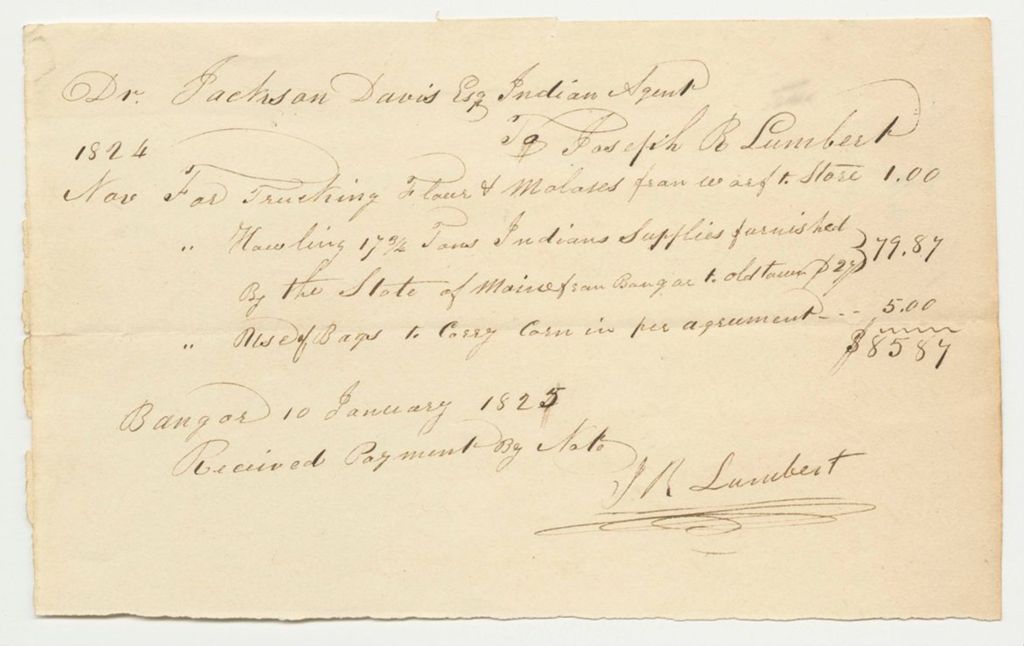 Dr. Jackson Davis Esq Indian Agent
To Joseph R Lumbert
1824
Nov For Trucking Flour & Molases fran warf to Store 1.00
" Hawling 17 3/4 Tons Indians Supplies furnished
By the State of Maine fran Bangor to oldtown 79.87
" Use of Bags to Carry Corn in per agreument 5.00
$85 87
Bangor 10 January 1825
Received Payment By Note
J R Lumbert